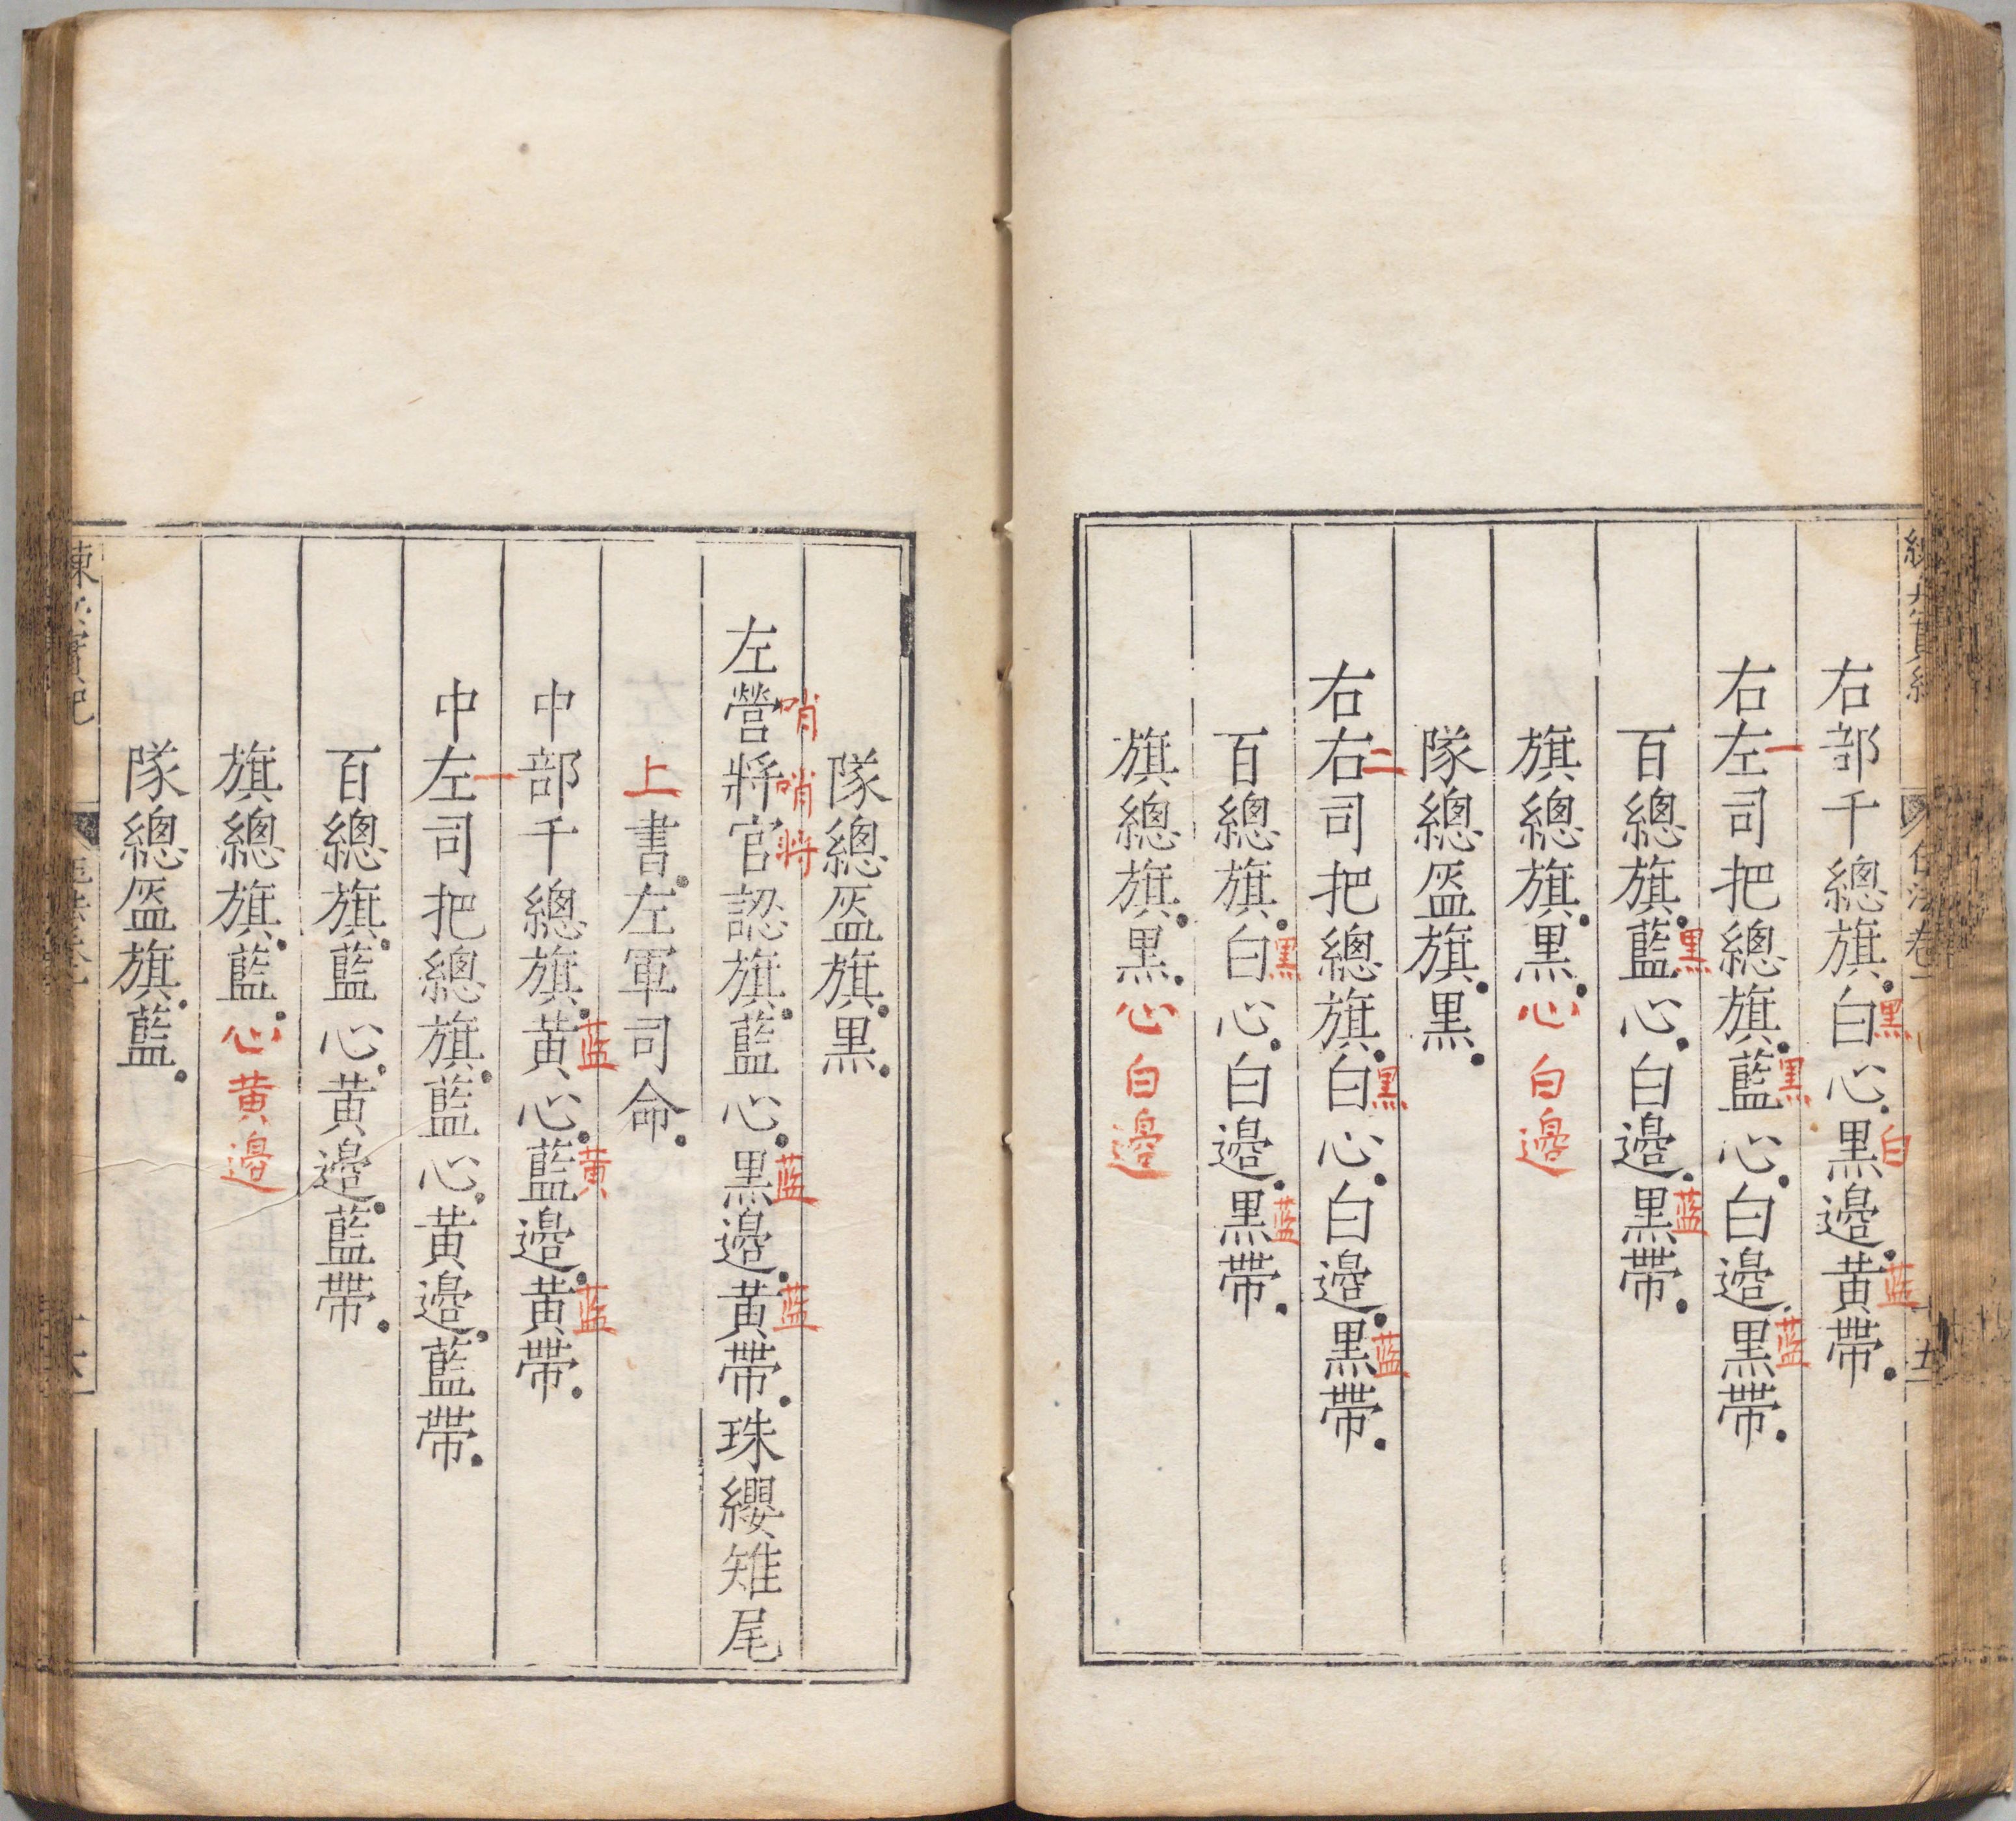 右部千總旗。白心。黑邊。黃帶。
黑 白 蓝
右左司把總旗。藍心。白邊。黑帶。
一 黑 蓝
百總旗。藍心。白邊。黑帶。
黑 蓝
旗總旗。黑。心白邊
隊總盔旗。黑。
右右司把總旗。白心。白邊。黑帶。
二 黑 蓝
百總旗。白心。白邊。黑帶。
黑 蓝
旗總旗。黑。心白邊
隊總盔旗。黑。
左營將官認旗。藍心。黑邊。黃帶。珠纓雉尾
哨 哨將 蓝 蓝
上書。左軍司命。
中部千總旗。黃心。藍邊。黃帶。
蓝 黄 蓝
中左司把總旗。藍心。黃邊。藍帶。
一
百總旗。藍心。黃邊。藍帶。
旗總旗。藍。心黄邊
隊總盔旗。藍。